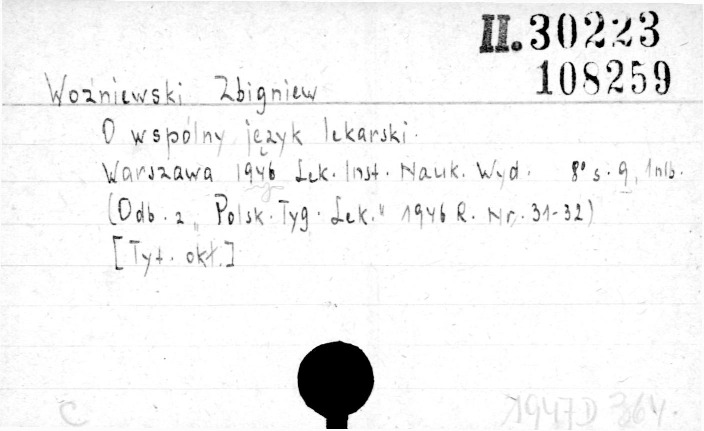 II. 30223
108259
Woźniewski Zbigniew
O wspólny język lekarski.
Warszawa 1946 Lek. Inst. Nauk. Wyd. 8° s. 9, 1 nlb.
(Odb. z „Polsk. Tyg. Lek." 1946 R. Nr. 31-32)
[Tyt. okł.]
C 1947 D 364.